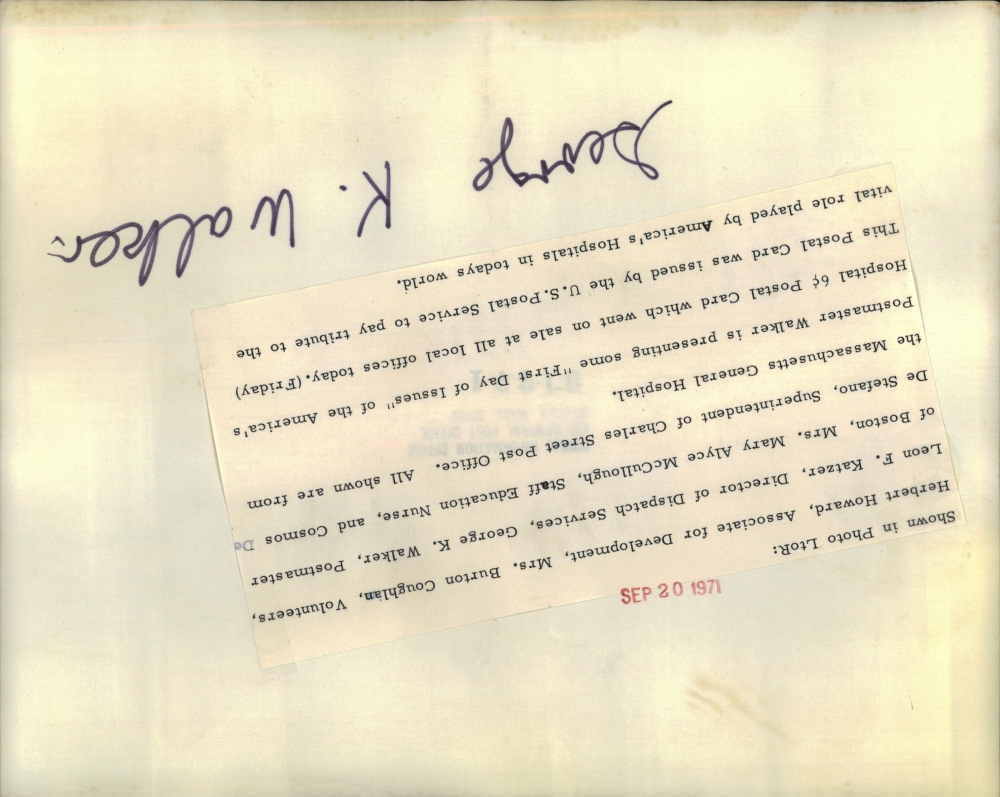 George K. Walker
Shown in Photo LtoR:
Herbert Howard, Associate for Development, Mrs. Burton Coughlan, Volunteers,
Leon F. Katzer, Director of Dispatch Services, George K. Walker, Postmaster
of Boston, Mrs. Mary Alyce McCullough, Staff Education Nurse, and Cosmos De
De Stefano, Superintendent of Charles Street Post Office. All shown are from
the Massachusetts General Hospital.
Postmaster Walker is presenting some "First Day of Issues" of the America's
Hospital 6¢ Postal Card which went on sale at all local offices today.(Friday)
This Postal Card was issued by the U.S.Postal Service to pay tribute to the
vital role played by America's Hospitals in todays world.
SEP 20 1971